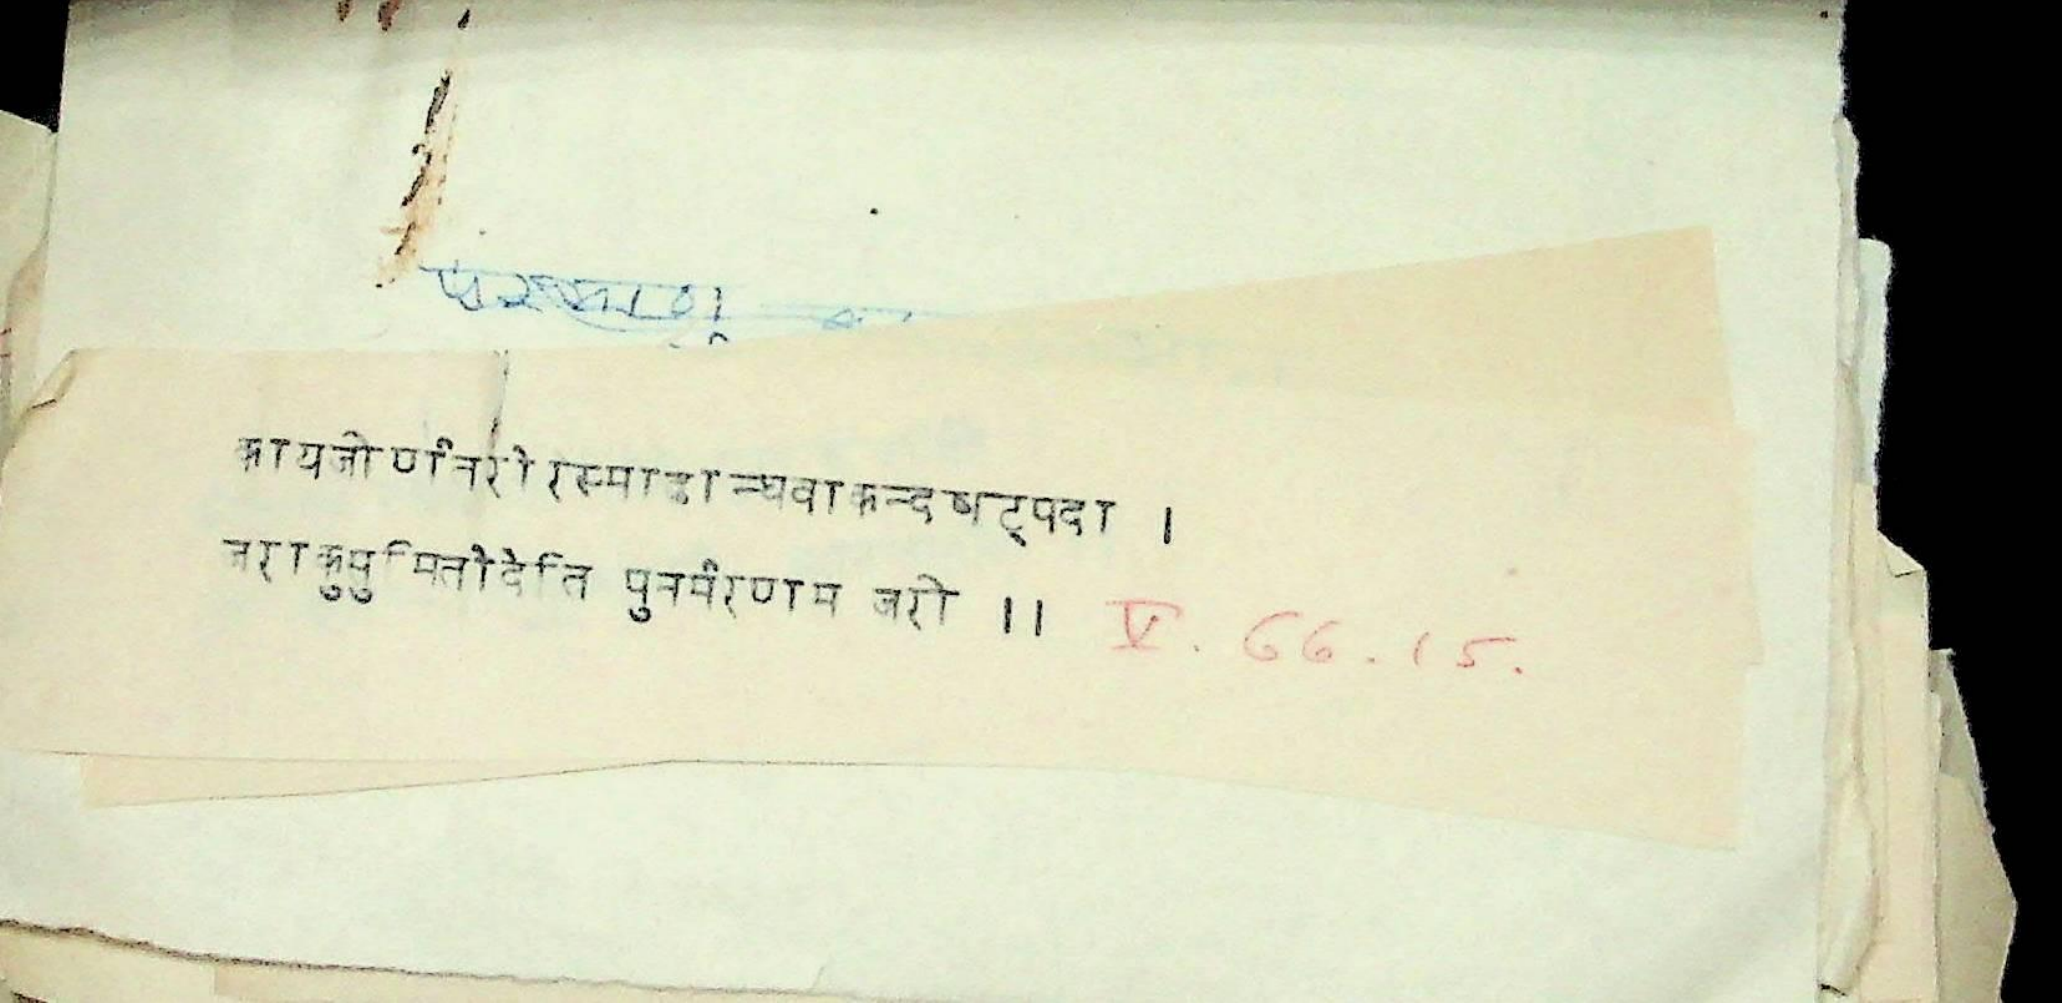 कायजीर्णंनरीरस्माडान्घवाकन्दषट्पदा ।
जराकुपुमितौदेति पुनर्मरणाम जरी ।। V. 66.15.